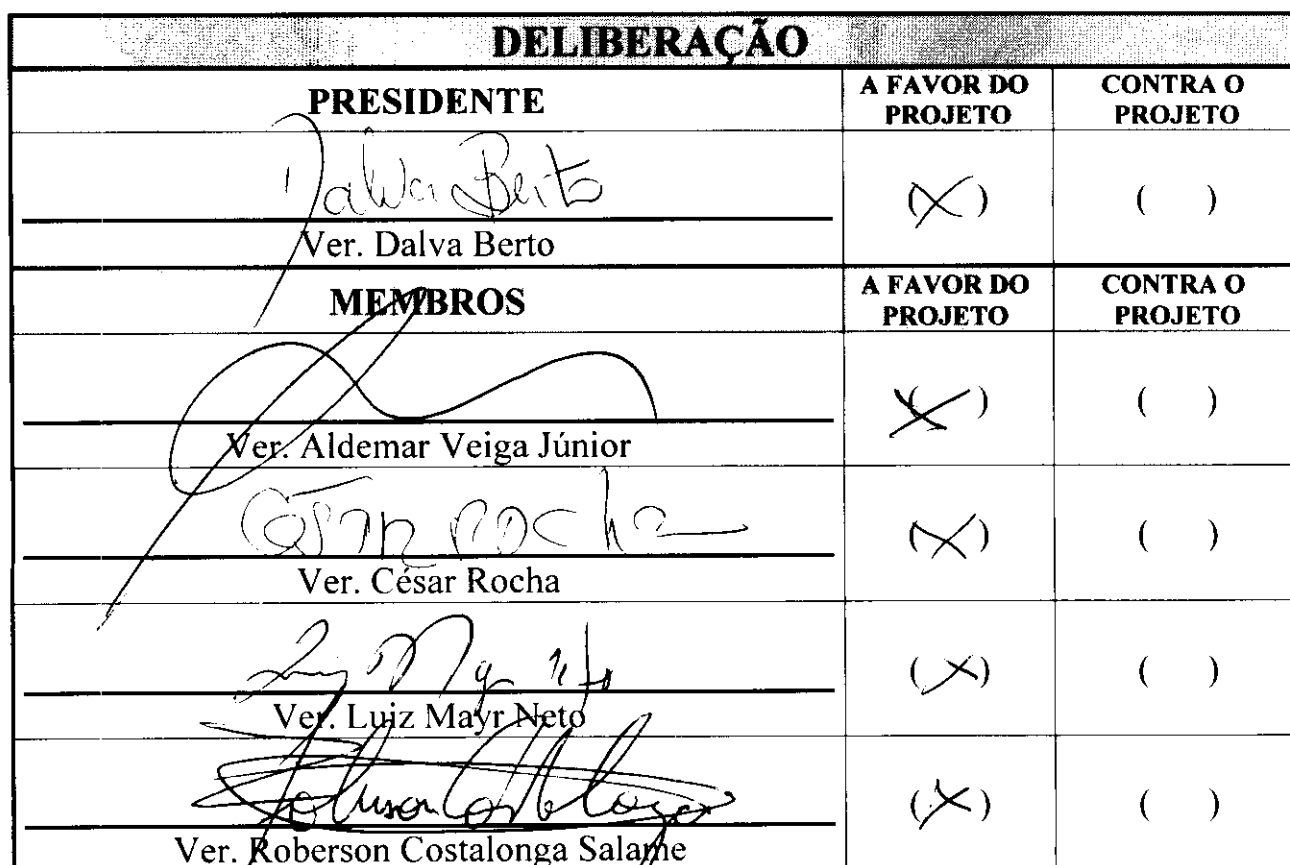 DELIBERAÇÃO
PRESIDENTE A FAVOR DO PROJETO CONTRA O PROJETO
Dalva Berto
Ver. Dalva Berto (X) ( )
MEMBROS A FAVOR DO PROJETO CONTRA O PROJETO
Ver. Aldemar Veiga Júnior (X) ( )
César Rocha
Ver. César Rocha (X) ( )
Luiz Mayr Neto
Ver. Luiz Mayr Neto (X) ( )
Roberson Costalonga
Ver. Roberson Costalonga Salame (X) ( )